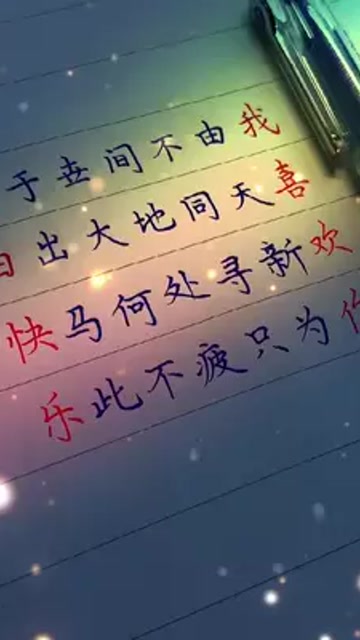 于世间不由我
日出大地同天喜
快马何处寻新欢
乐此不疲只为你